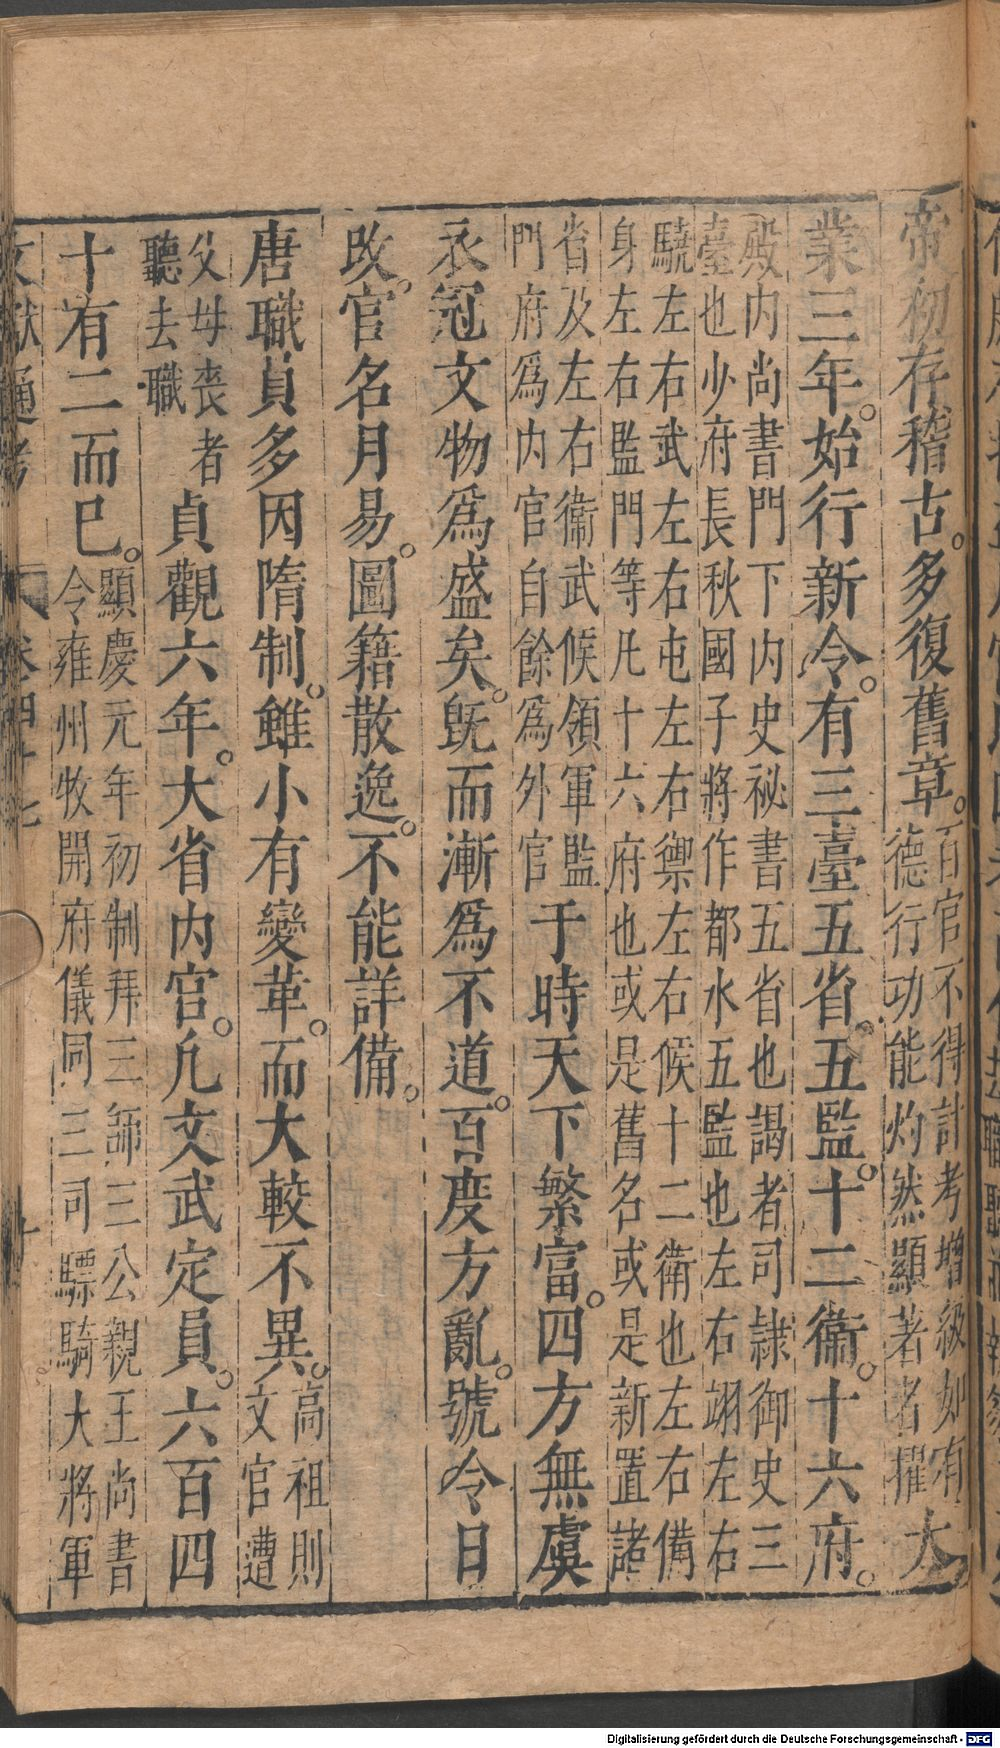 帝初存稽古。多復舊章。百官不得計考增級如有
德行功能灼然顯著者擢大
業三年。始行新令。有三臺五省。五監。十二衞。十六府。
殿内尚書門下内史祕書五省也謁者司隷御史三
臺也少府長秋國子將作都水五監也左右翊左右
驍左右武左右屯左右禦左右候十二衞也左右備
身左右監門等凡十六府也或是舊名或是新置諸
省及左右衞武候領軍監
門府爲内官自餘爲外官于時天下繁富。四方無虞
衣冠文物爲盛矣。旣而漸爲不道。百度方亂。號令日
改。官名月易。圖籍散逸。不能詳備。
唐職員多因隋制。雖小有變革。而大較不異。高祖則
文官遭
父母喪者
聽去職貞觀六年。大省内官。凡文武定員。六百四
十有二而已。顯慶元年初制拜三師三公親王尚書
令雍州牧開府儀同三司驃騎大將軍
文獻通考 卷四十七 十
Digitalisierung gefördert durch die Deutsche Forschungsgemeinschaft - DFG